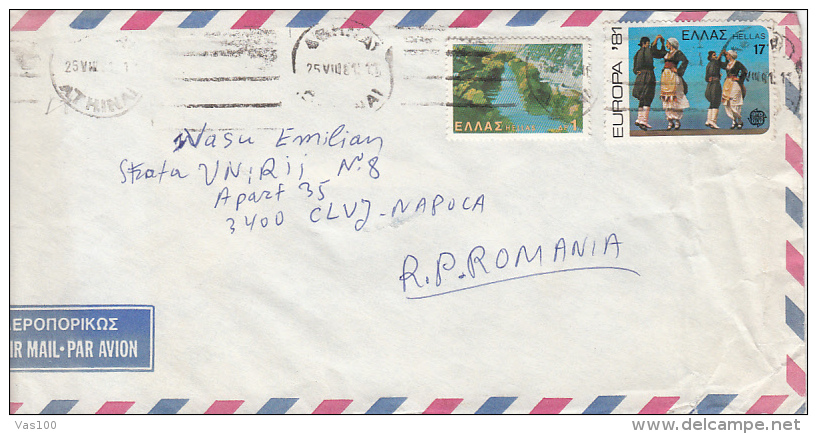 25 VIII
ΑΤΗΙΝΑΙ
25 VIII 81
ΕΛΛΑΣ HELLAS ΔΡ. 1
EUROPA '81
ΕΛΛΑΣ HELLAS
17
Wasu Emilian
Strata UNiRii N:8
Apart 35
3400 CLUJ-NAPOCA
R.P.ROMANIA
ΑΕΡΟΠΟΡΙΚΩΣ
IR MAIL·PAR AVION
Vas100
delcampe.net